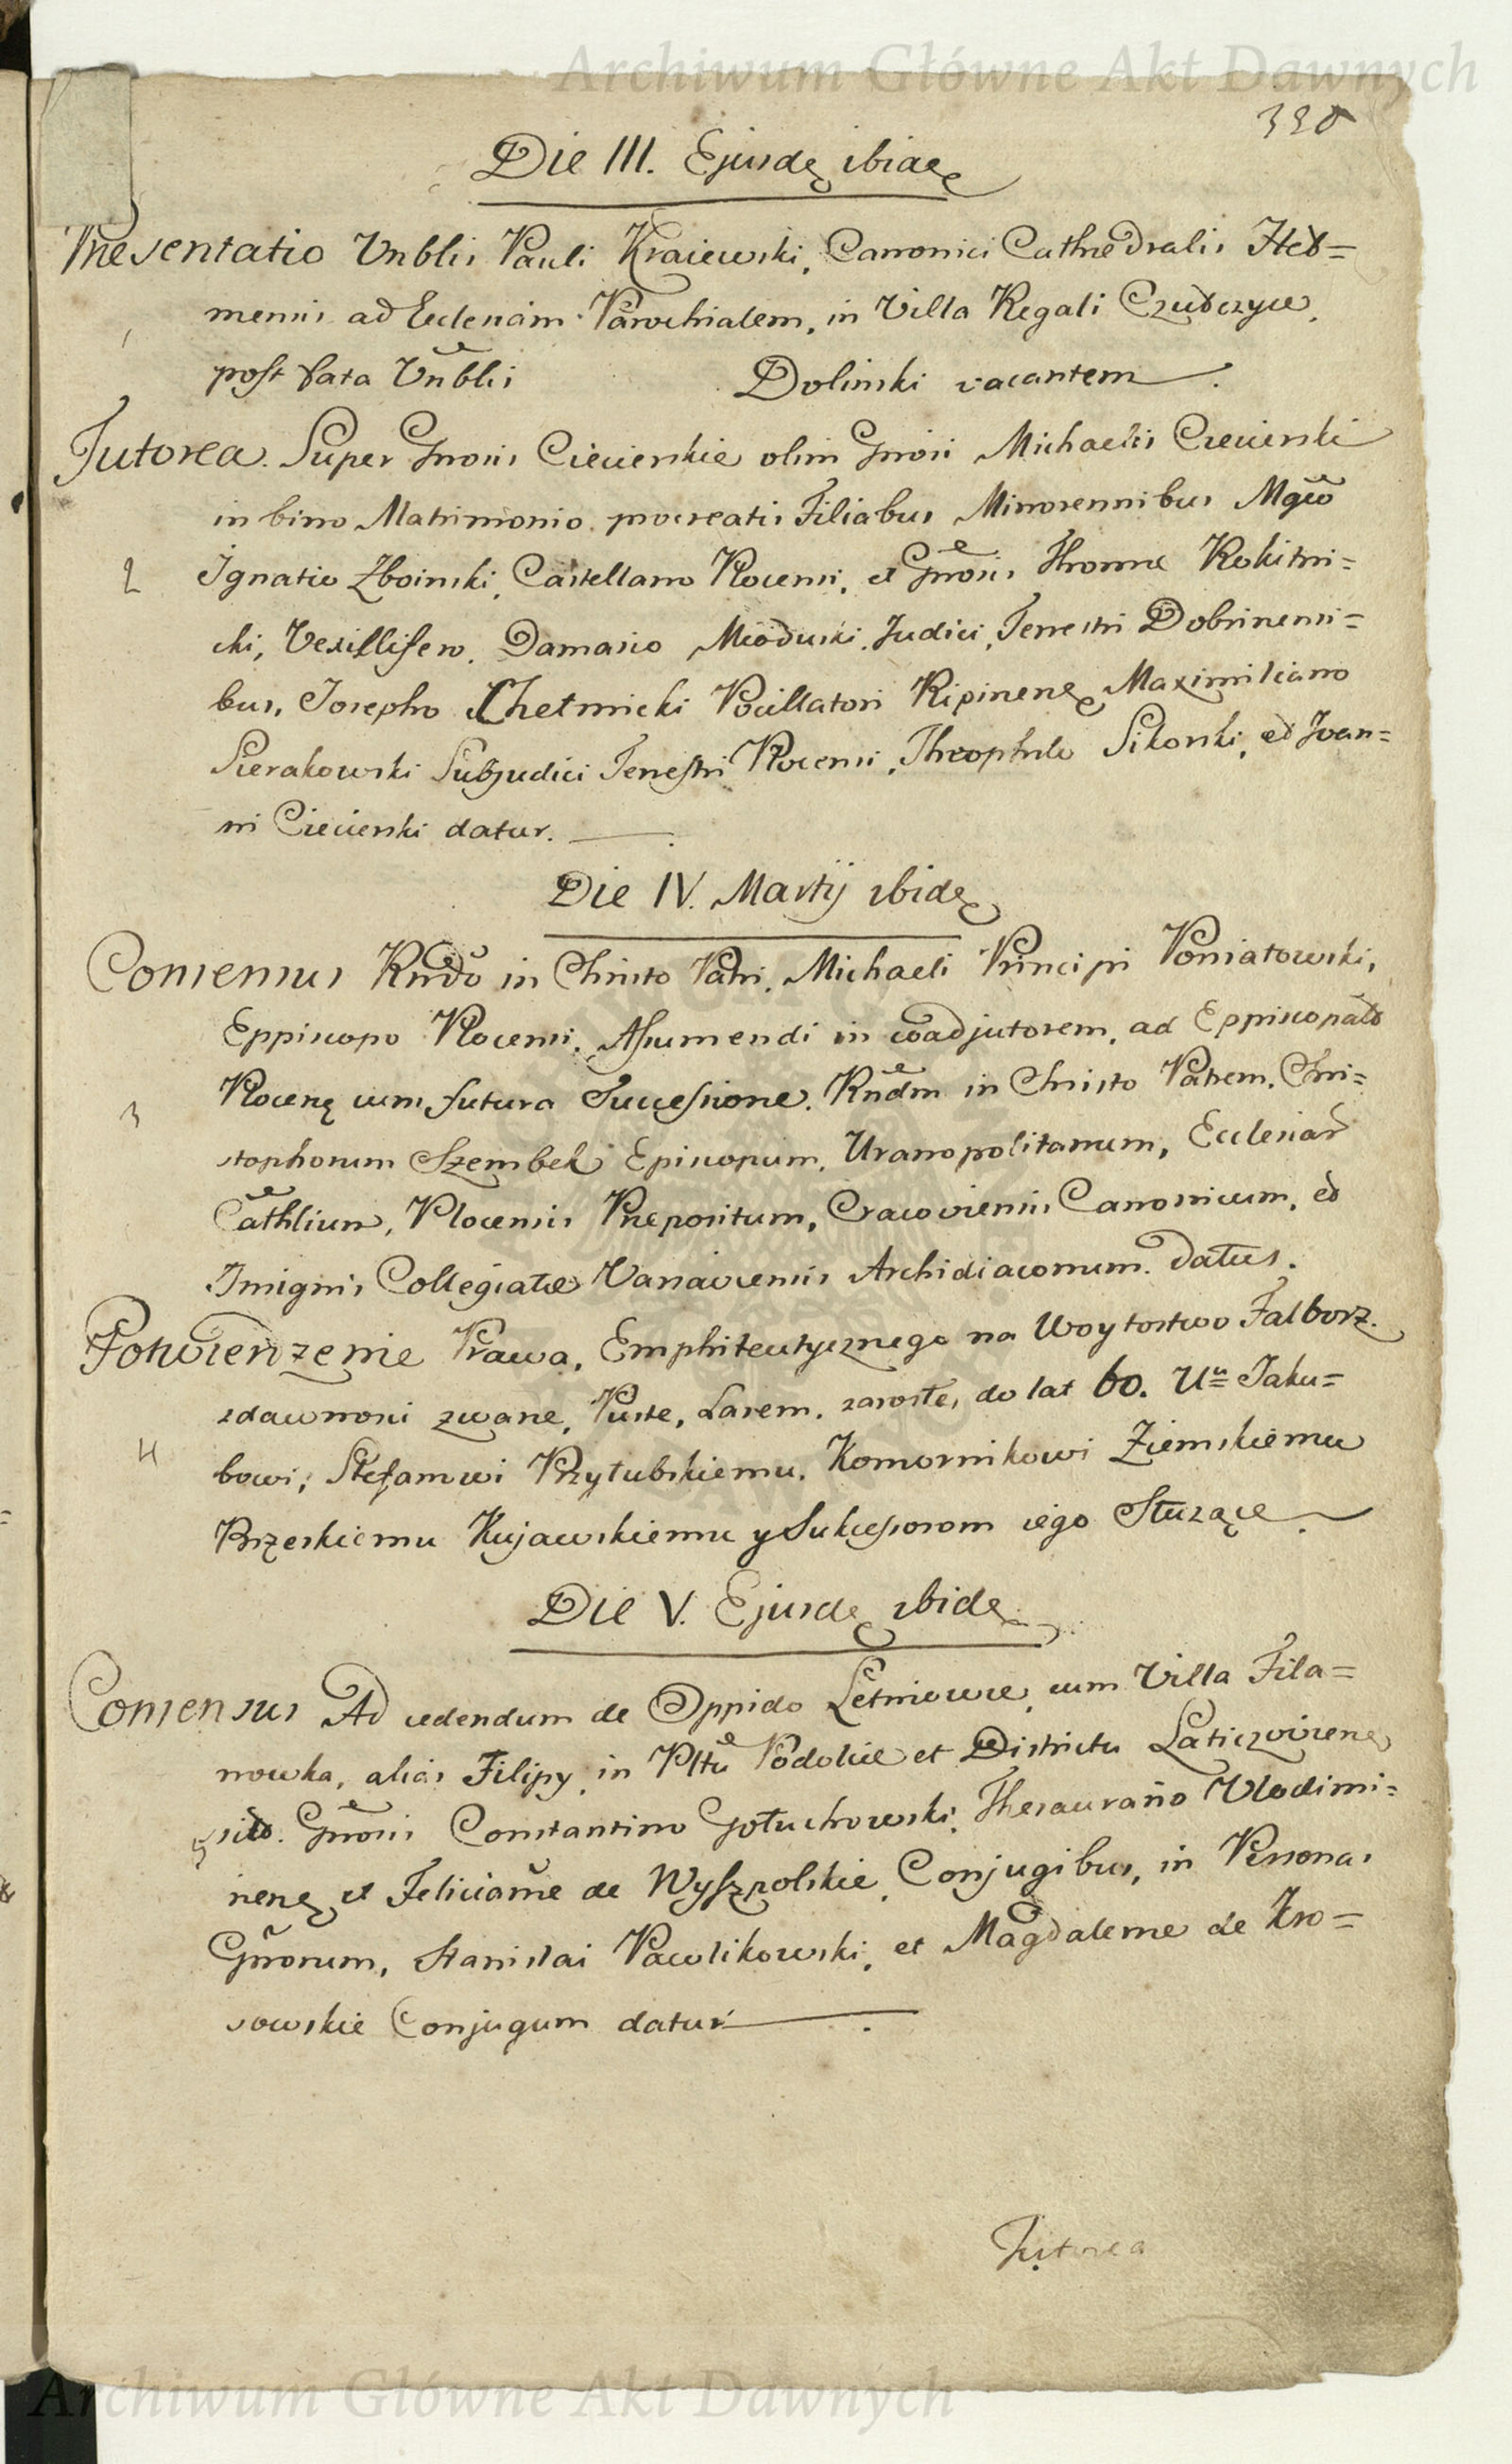 Archiwum Główne Akt Dawnych
Die III. Ejusdę ibidę
Præsentatio Vnblis Pauli Kraiewski, Canonici Cathedralis
mensis ad Ecclesiam Parochialem, in Villa Regali Czudczyce,
1
post fata Vnblis Dolinski vacantem.
Tutorea. Super Gnosis Ciecierskie olim Gnosi Michaelis Ciecierski
in bino Matrimonio procreatis Filiabus Minorennibus Mgco
2 Ignatio Zboinski, Castellano Plocensi, et Gnosis Thomæ Rokitni=
cki, Vexillifero, Damasio Mioduski, Judici, Terrestri Dobrinensi=
bus, Josepho Chetmicki Pocillatori Ripinenę, Maximiliano
Sierakowski Subjudici Terrestri Plocensi, Theophilo Sikorski, et Joan=
ni Ciecierski datur.
Die IV. Martij ibidę
Consensus Rndo in Christo Patri, Michaeli Principi Poniatowski,
Eppiscopo Plocensi, Assumendi in coadjutorem, ad
3 Plocenę cum futura Successione, Rndm in Christo Patrem, Chri=
stophorum Szembek Episcopum, Uranopolitanum,
Cathlium, Plocensis Præpositum, Cracoviensis Canonicum, et
Insignis Collegiatæ Varsaviensis Archidiaconum. datus.
Potwierdzenie Prawa, Emphiteutycznego na Woytostwo Falborz.
zdawnosci zwane, Puste, Lasem, zarosłe, do lat 60. Ur Jaku=
4 bowi, Stefanowi Przyłubskiemu, Komornikowi Ziemskiemu
Brzeskiemu Kujawskiemu y Sukcessorom iego Służące.
Die V. Ejusdę ibidę
Consensus Ad cedendum de Oppido Letniowce, cum Villa Fila=
nowka, alias Filipy, in Pltu Podoliæ et Districtu Laticzovienę
5 Gnosis Constantino Gołuchowski, Thesaurario Vlodimi=
rienę et Felicianæ de Wyszpolskie, Conjugibus, in Personas
Gnsorum, Stanislai Pawlikowski, et Magdalenæ de Kro=
sowskie Conjugum datur.
Tutorea
Archiwum Główne Akt Dawnych